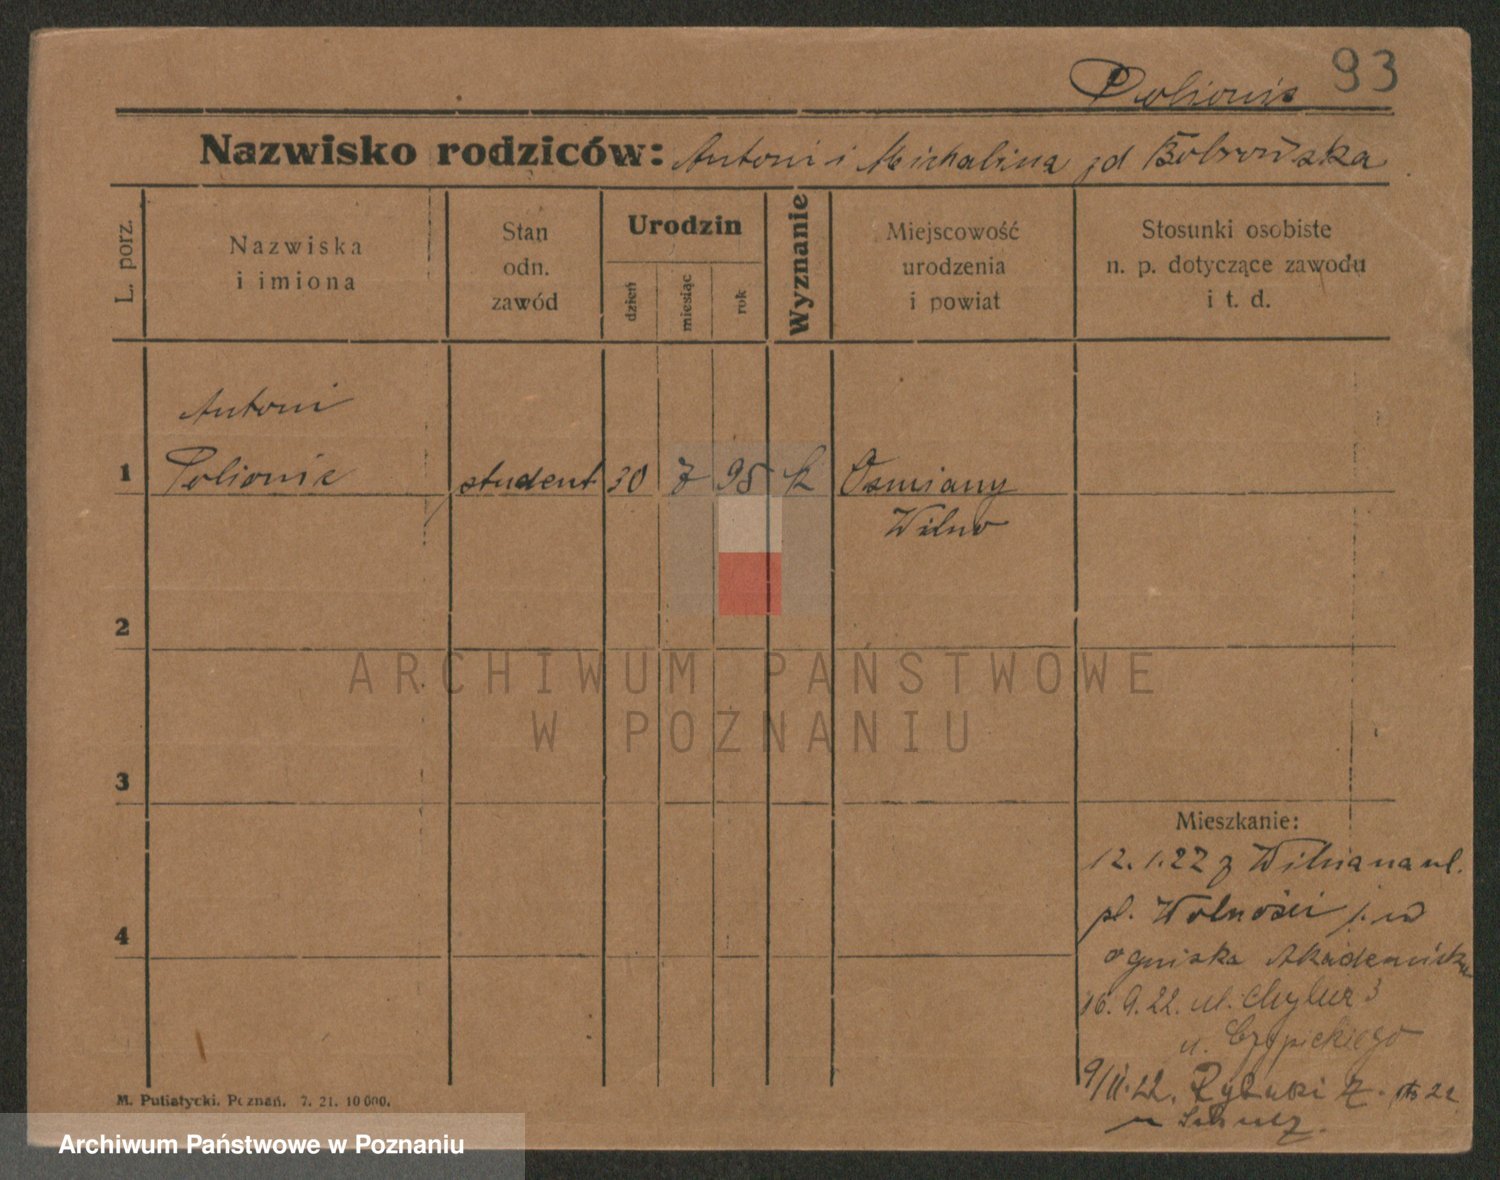 Polionis 93
Nazwisko rodziców: Antoni i Michalina zd Bobrowska
L. porz.
Nazwiska
i imiona
Stan
odn.
zawód
Urodzin
dzień
miesiąc
rok
Wyznanie
Miejscowość
urodzenia
i powiat
Stosunki osobiste
n. p. dotyczące zawodu
i t. d.
Antoni
1 Polionis student 30 7 95 k Osmiany
Wilno
2
ARCHIWUM PAŃSTWOWE
W POZNANIU
3
Mieszkanie:
12.1.22 z Wilna na ul.
pl. Wolności
4
ogniska
16.9.22. ul.
u.
9/11.22. 22
u
M. Putiatycki. Poznań. 7. 21. 10 000.
Archiwum Państwowe w Poznaniu